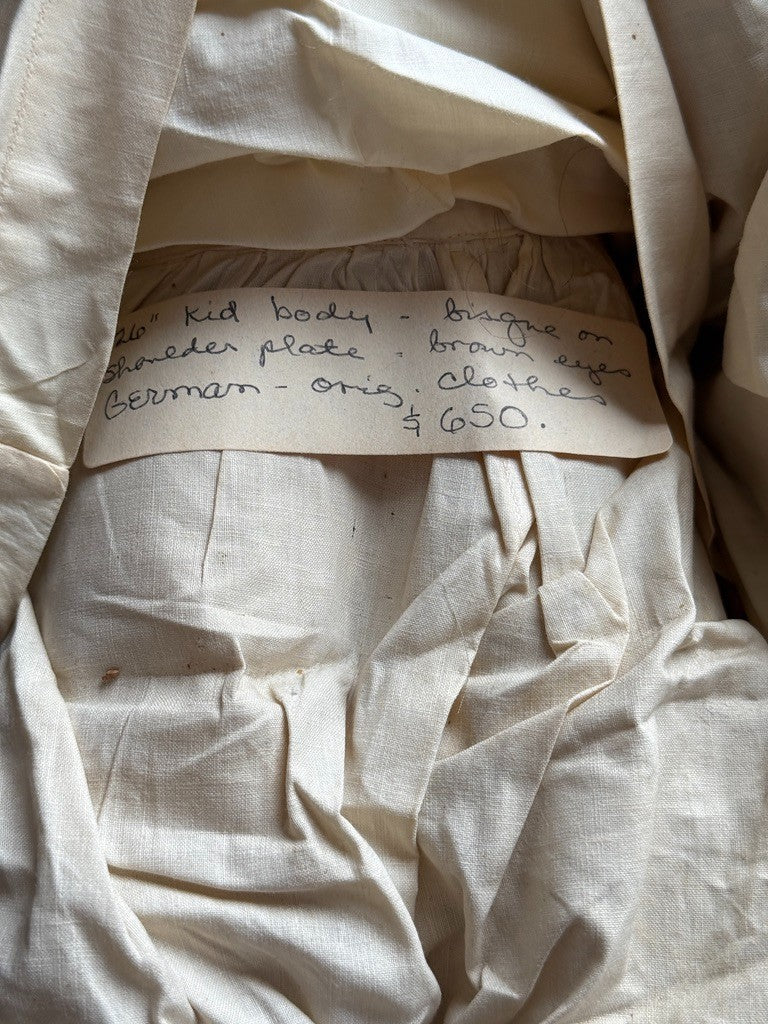 26" Kid body - bisque on
shoulder plate - brown eyes
German - orig. clothes
$650.